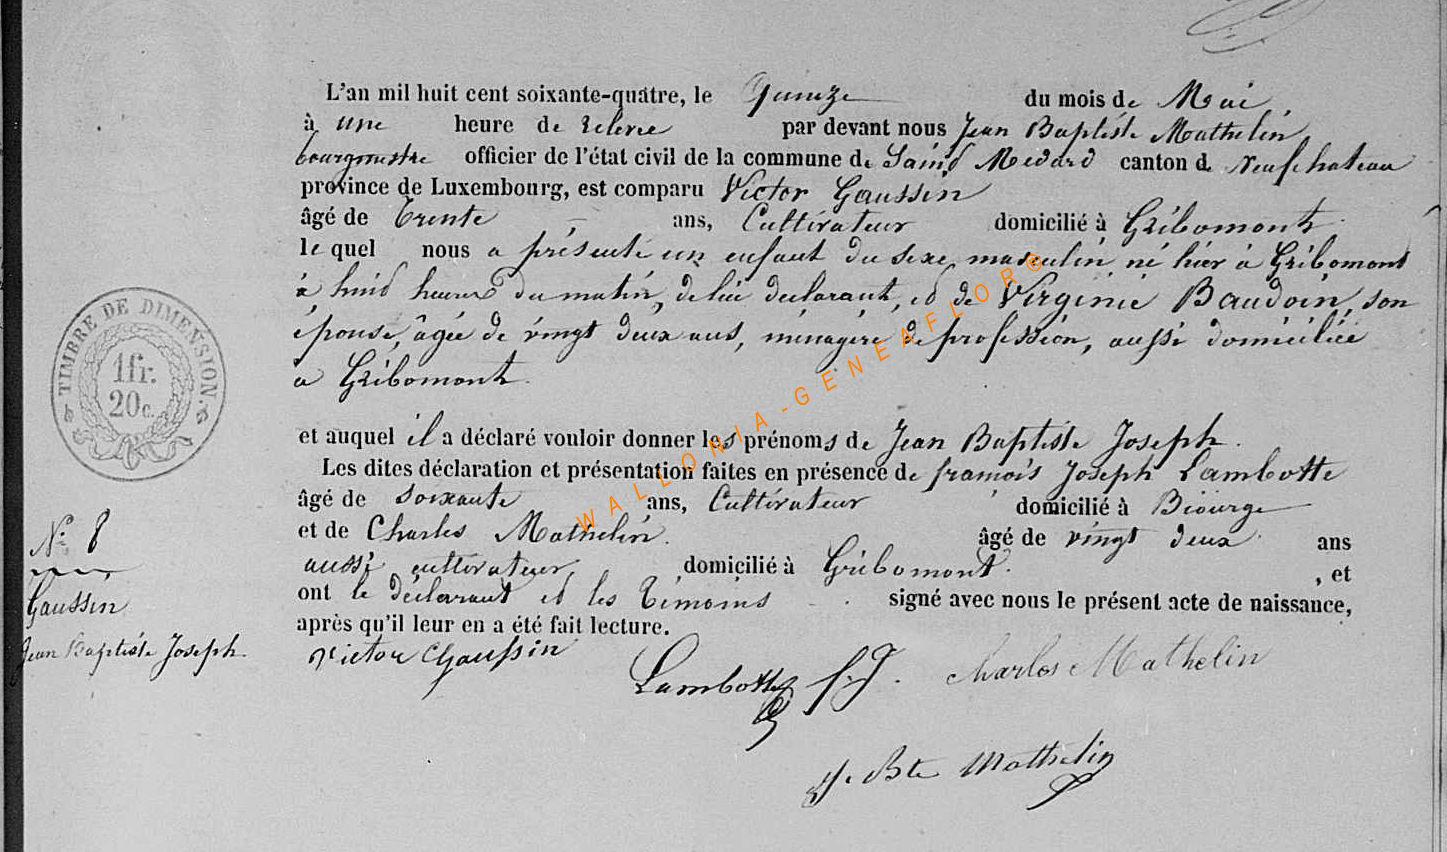 L'an mil huit cent soixante-quatre, le quinze du mois de Mai,
à une heure de relevée par devant nous Jean Baptiste Mathelin
bourgmestre officier de l'état civil de la commune de Saint Medard canton de Neufchateau
province de Luxembourg, est comparu Victor Gaussin
âgé de trente ans, Cultivateur domicilié à Gribomont
le quel nous a présenté un enfant du sexe masculin, né hier à Gribomont
à huit heures du matin, de lui déclarant, et de Virginie Baudoin, son
épouse, âgée de vingt deux ans, ménagère de profession, aussi domiciliée
a Gribomont.
et auquel il a déclaré vouloir donner les prénoms de Jean Baptiste Joseph.
Les dites déclaration et présentation faites en présence de françois Joseph Lambotte
âgé de soixante ans, Cultivateur domicilié à Biourge
et de Charles Mathelin. âgé de vingt deux ans
aussi cultivateur, domicilié à Gribomont. , et
ont le déclarant et les témoins signé avec nous le présent acte de naissance,
après qu'il leur en a été fait lecture.
Victor Gaussin
Lambotte f. J. Charles Mathelin
J. Bte Mathelin
TIMBRE DE DIMENSION.
1fr.
20c.
N° 8
Gaussin
Jean Baptiste Joseph.
WALLONIA-GENEAFLOR®